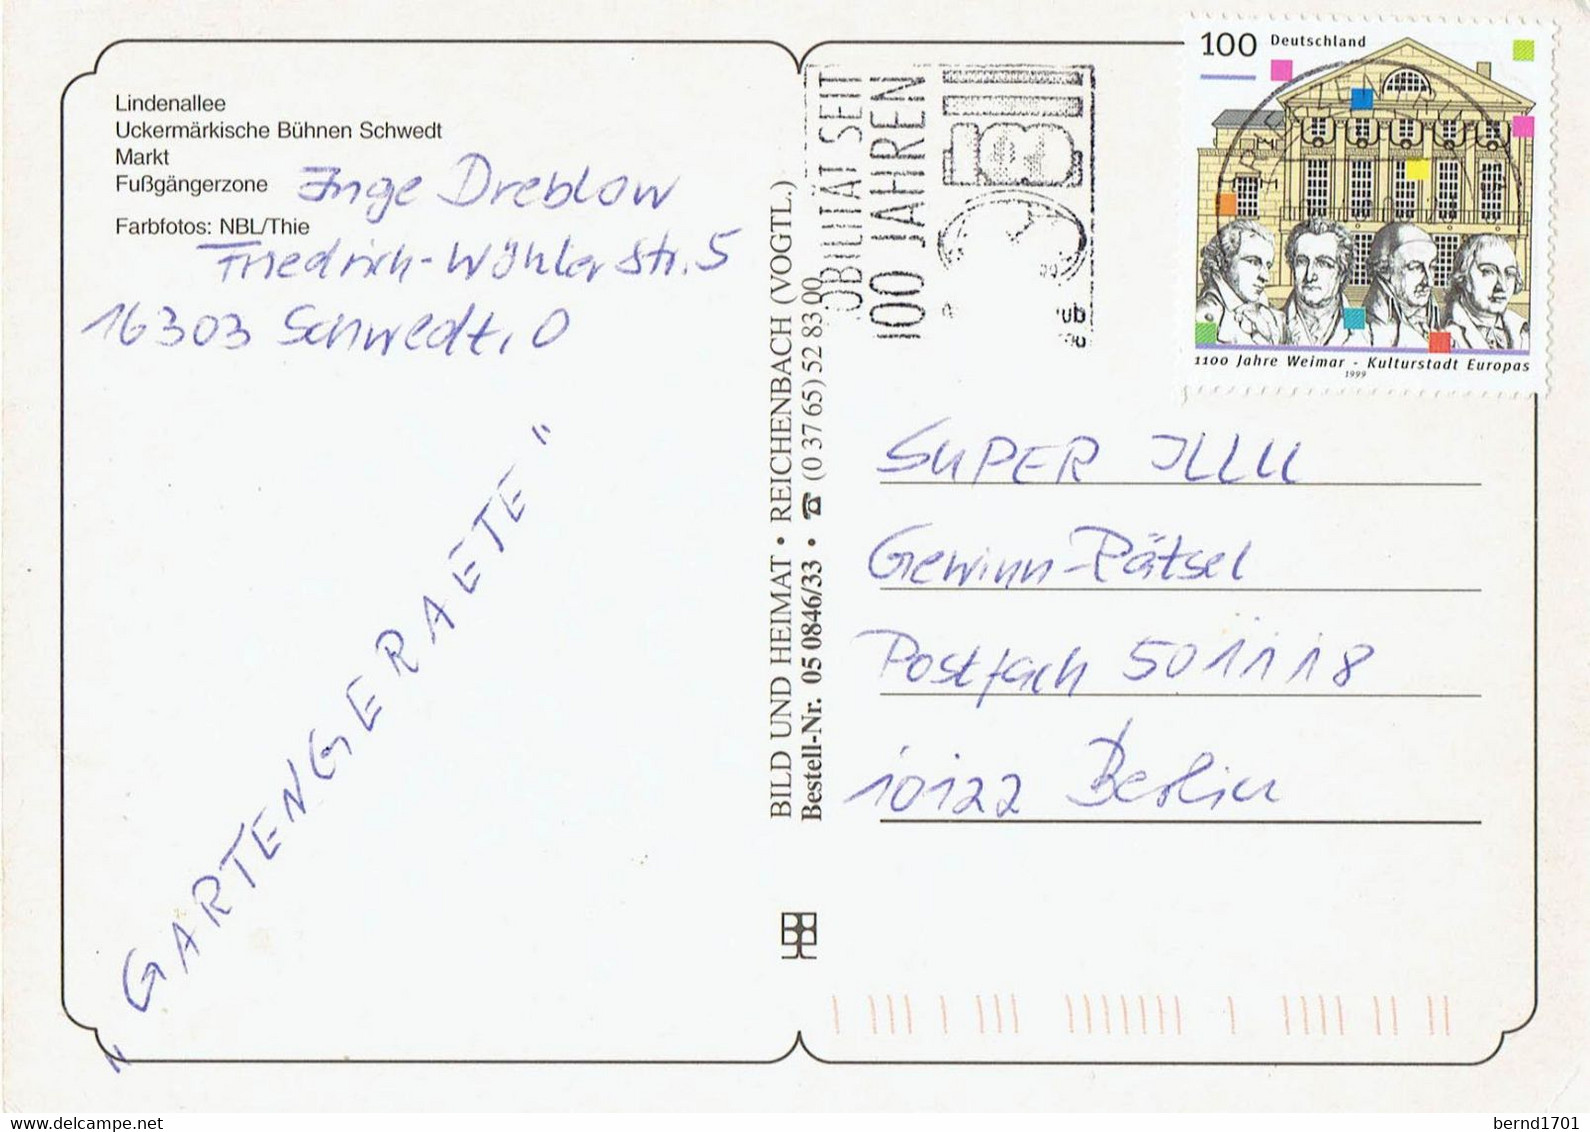 Lindenallee
Uckermärkische Bühnen Schwedt
Markt
Fußgängerzone
Farbfotos: NBL/Thie
Inge Dreblow
Friedrich-Wöhler Str. 5
16303 Schwedt, O
"GARTENGERAETE"
BILD UND HEIMAT • REICHENBACH (VOGTL.)
Bestell-Nr. 05 0846/33 • ☎ (0 37 65) 52 83 00
OBILITÄT SEIT
100 JAHREN
100 Deutschland
1100 Jahre Weimar - Kulturstadt Europas
1999
SUPER ILLU
Gewinn-Rätsel
Postfach 501118
10122 Berlin
bernd1701